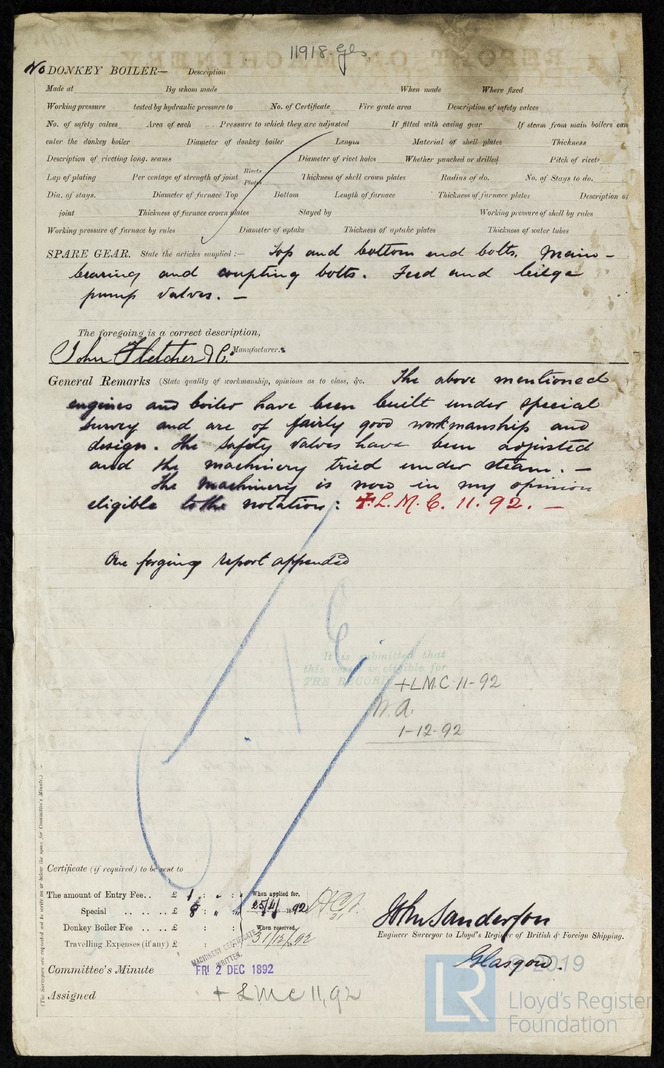 11918 gls
No DONKEY BOILER— Description
Made at By whom made When made Where fixed
Working pressure tested by hydraulic pressure to No. of Certificate Fire grate area Description of safety valves
No. of safety valves Area of each Pressure to which they are adjusted If fitted with easing gear If steam from main boilers can
enter the donkey boiler Diameter of donkey boiler Length Material of shell plates Thickness
Description of riveting long. seams Diameter of rivet holes Whether punched or drilled Pitch of rivets
Lap of plating Per centage of strength of joint Rivets Plates Thickness of shell crown plates Radius of do. No. of Stays to do.
Dia. of stays. Diameter of furnace Top Bottom Length of furnace Thickness of furnace plates Description of
joint Thickness of furnace crown plates Stayed by Working pressure of shell by rules
Working pressure of furnace by rules Diameter of uptake Thickness of uptake plates Thickness of water tubes
SPARE GEAR. State the articles supplied:— Top and bottom end bolts, Main-
bearing and coupling bolts. Feed and bilge
pump valves. —
The foregoing is a correct description,
John Fletcher & Co Manufacturer.
General Remarks (State quality of workmanship, opinions as to class, &c. The above mentioned
engines and boiler have been built under special
survey and are of fairly good workmanship and
design. The safety valves have been adjusted
and the machinery tried under steam. —
The machinery is now in my opinion
eligible to the notation: +L.M.C. 11.92. —
One forging report appended
It is submitted that
this vessel is eligible for
THE RECORD
+LMC 11-92
1-12-92
(The Surveyors are requested not to write on or below the space for Committee's Minute.)
Certificate (if required) to be sent to
The amount of Entry Fee.. £ 1 : " : " When applied for,
Special .. .. .. .. £ 8 : " : " 25/11/1892
Donkey Boiler Fee .. .. .. £ : : When received,
Travelling Expenses (if any) £ : : 31/12/92
MACHINERY CERTIFICATE
WRITTEN.
John Sanderson
Engineer Surveyor to Lloyd's Register of British & Foreign Shipping.
Glasgow.
Committee's Minute FRI 2 DEC 1892
Assigned + LMC 11,92
© 2019
LR
Lloyd's Register
Foundation